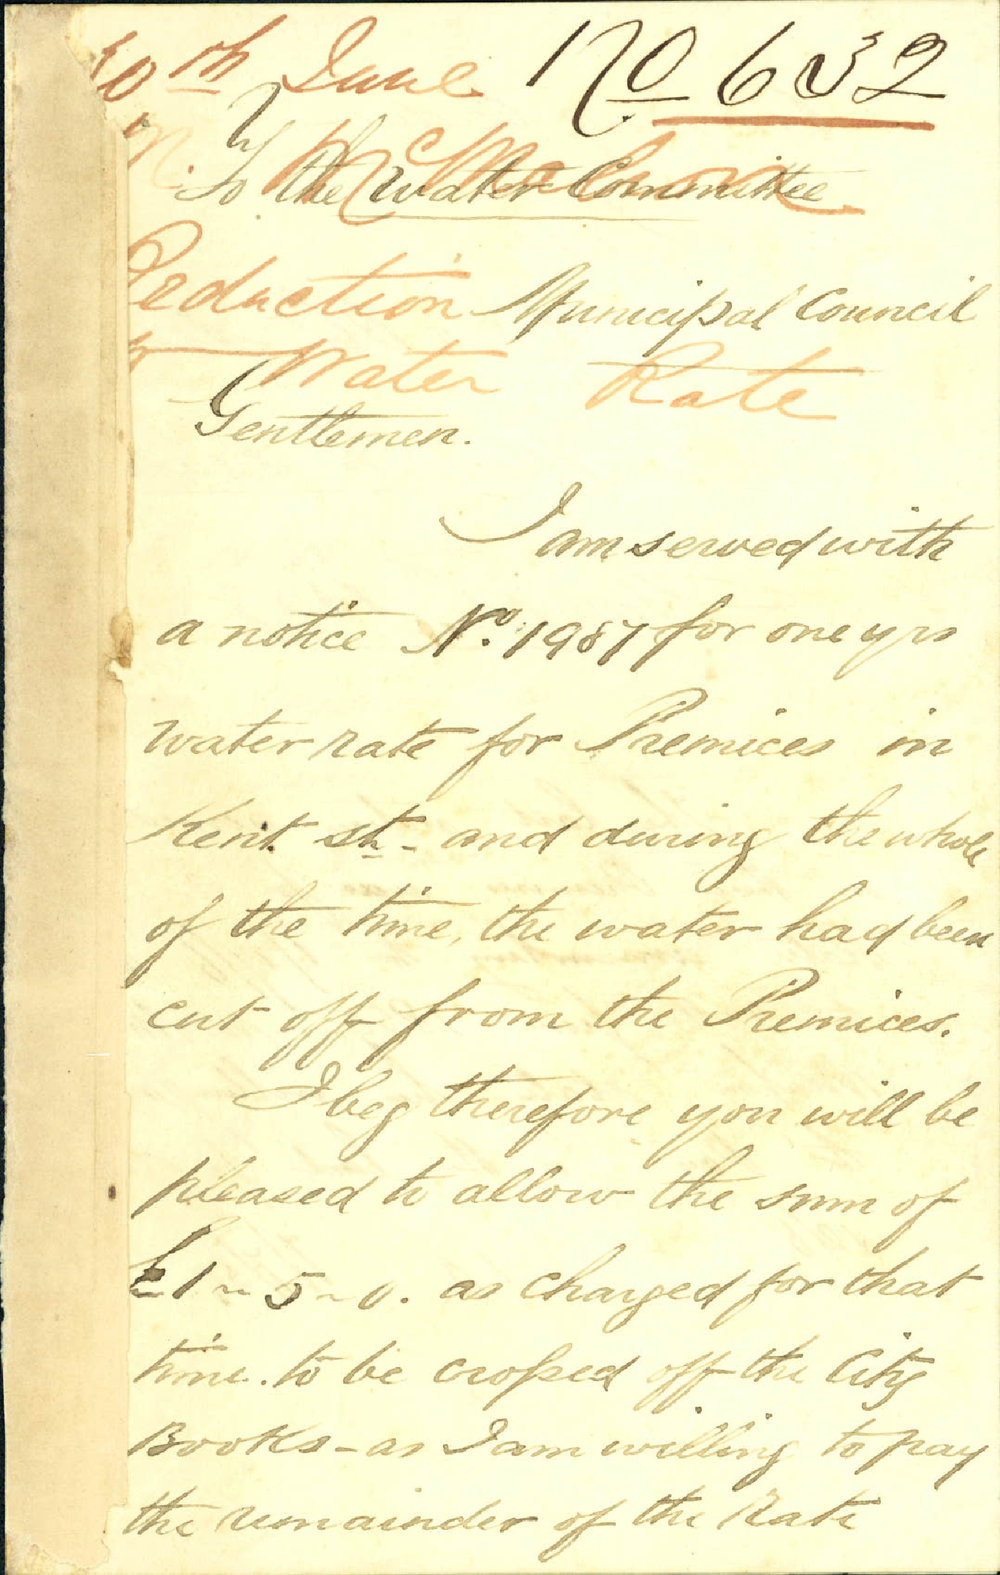 10th June No 632
To the Water Committee
Reduction Municipal Council
Water Rate
Gentlemen.
I am served with
a notice No. 1987 for one yrs
water rate for Premices in
Kent st - and during the whole
of the time, the water had been
cut off from the Premices.
I beg therefore you will be
pleased to allow the sum of
£1 ~ 5 ~ 0. as charged for that
time. to be crossed off the City
Books - as I am willing to pay
the remainder of the Rate